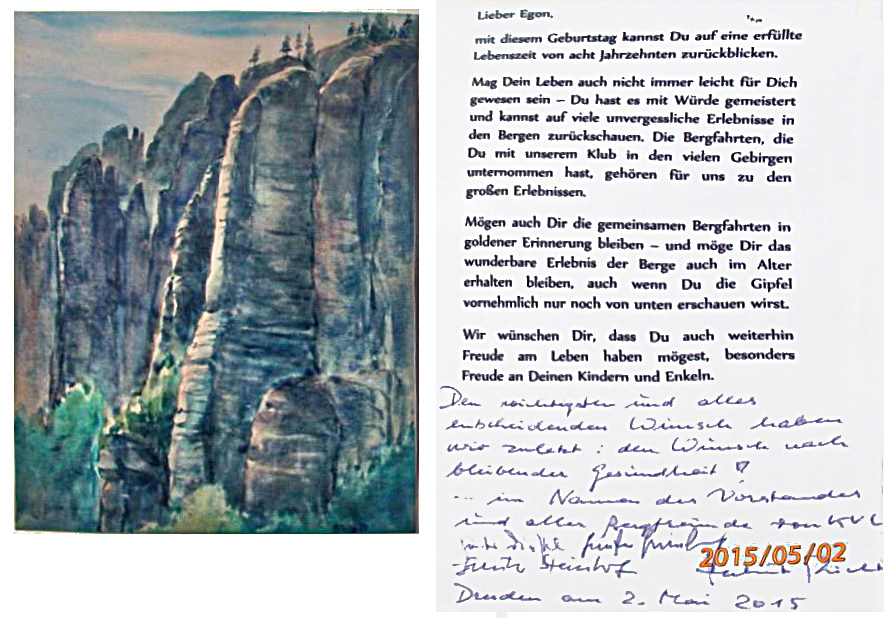 Lieber Egon,
mit diesem Geburtstag kannst Du auf eine erfüllte
Lebenszeit von acht Jahrzehnten zurückblicken.
Mag Dein Leben auch nicht immer leicht für Dich
gewesen sein – Du hast es mit Würde gemeistert
und kannst auf viele unvergessliche Erlebnisse in
den Bergen zurückschauen. Die Bergfahrten, die
Du mit unserem Klub in den vielen Gebirgen
unternommen hast, gehören für uns zu den
großen Erlebnissen.
Mögen auch Dir die gemeinsamen Bergfahrten in
goldener Erinnerung bleiben – und möge Dir das
wunderbare Erlebnis der Berge auch im Alter
erhalten bleiben, auch wenn Du die Gipfel
vornehmlich nur noch von unten erschauen wirst.
Wir wünschen Dir, dass Du auch weiterhin
Freude am Leben haben mögest, besonders
Freude an Deinen Kindern und Enkeln.
Den wichtigsten und alles
entscheidenden Wunsch haben
wir zuletzt: den Wunsch nach
bleibender Gesundheit!
... im Namen des Vorstandes
und aller Bergfreunde vom KVL
2015/05/02
Dresden am 2. Mai 2015